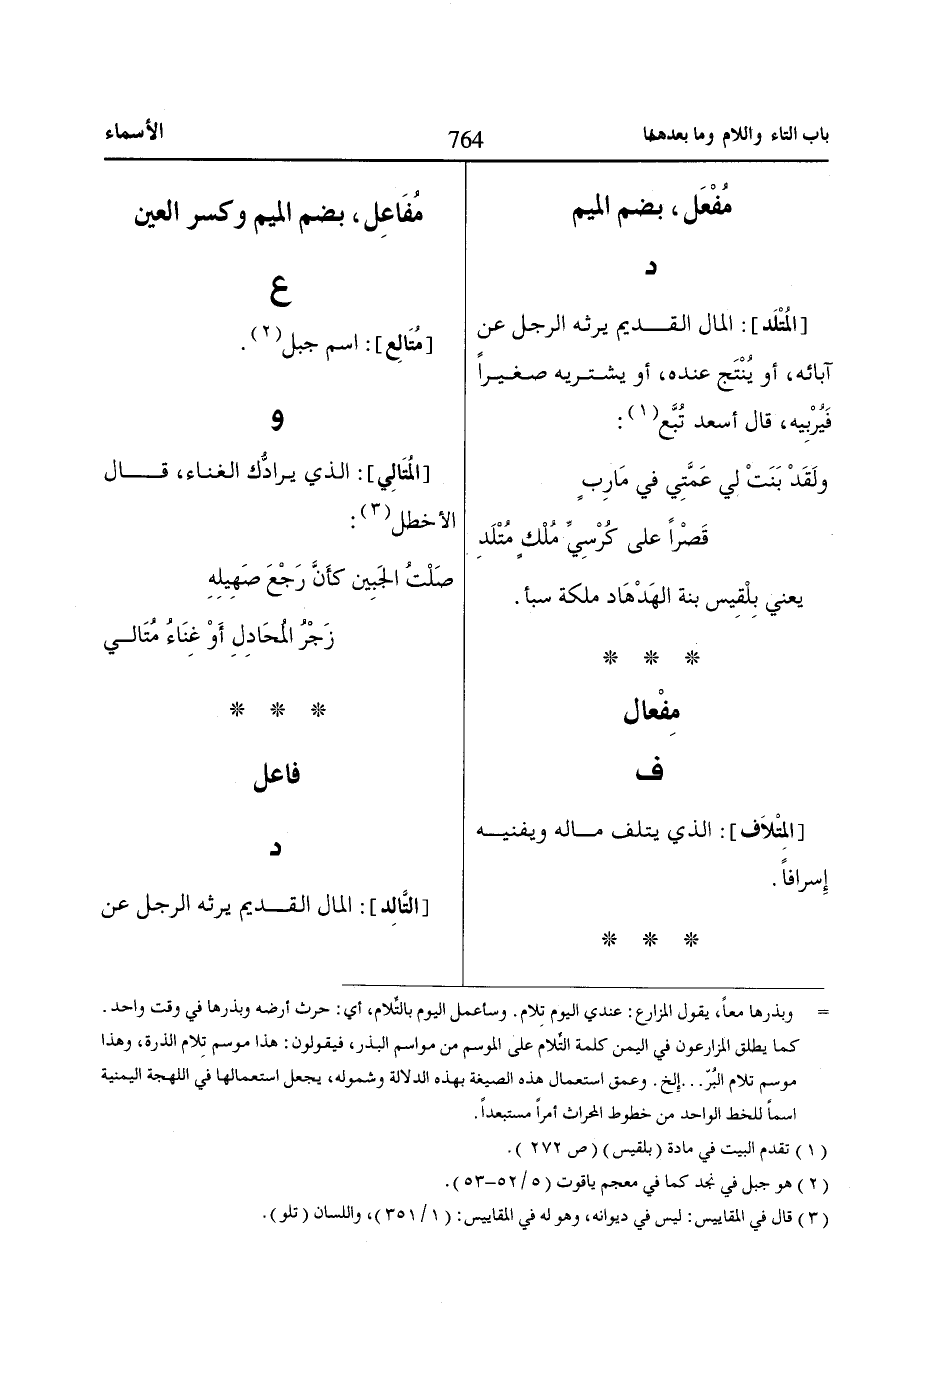 باب التاء واللام وما بعدهما
764
الأسماء
مُفْعَل، بضم الميم
د
[المُتْلَد]: المال القـــديم يرثه الرجل عن
آبائه، أو يُنْتَج عنده، أو يشـتـريه صـغـيـراً
فَيُرْبِيه، قال أسعد تُبَّع(١):
ولَقَدْ بَنَتْ لي عَمَّتِي في مَارِبٍ
قَصْراً على كُرْسِيِّ مُلْكٍ مُتْلَدِ
يعني بِلْقِيس بنة الهَدْهَاد ملكة سبأ.
* * *
مِفْعال
ف
[المِتْلاَف]: الذي يتلف مـاله ويفنيـه
إسرافاً.
* * *
مُفَاعِل، بضم الميم وكسر العين
ع
[مُتَالِع]: اسم جبل(٢).
و
[المُتَالِي]: الذي يرادُّك الغناء، قـــال
الأخطل(٣):
صَلْتُ الجَبِين كأنَّ رَجْعَ صَهِيلِهِ
زَجْرُ المُحَادِلِ أَوْ غِنَاءُ مُتَالـي
* * *
فاعل
د
[التَّالِد]: المال القـــديم يرثه الرجل عن
= وبذرها معاً، يقول المزارع: عندي اليوم تِلام. وسأعمل اليوم بالتِّلام، أي: حرث أرضه وبذرها في وقت واحد.
كما يطلق المزارعون في اليمن كلمة التِّلام على الموسم من مواسم البذر، فيقولون: هذا موسم تِلام الذرة، وهذا
موسم تلام البُرّ...إلخ. وعمق استعمال هذه الصيغة بهذه الدلالة وشموله، يجعل استعمالها في اللهجة اليمنية
اسماً للخط الواحد من خطوط المحراث أمراً مستبعداً.
(١) تقدم البيت في مادة (بلقيس) (ص ٢٧٢).
(٢) هو جبل في نجد كما في معجم ياقوت (٥/ ٥٢-٥٣).
(٣) قال في المقاييس: ليس في ديوانه، وهو له في المقاييس: (١/ ٣٥١)، واللسان (تلو).